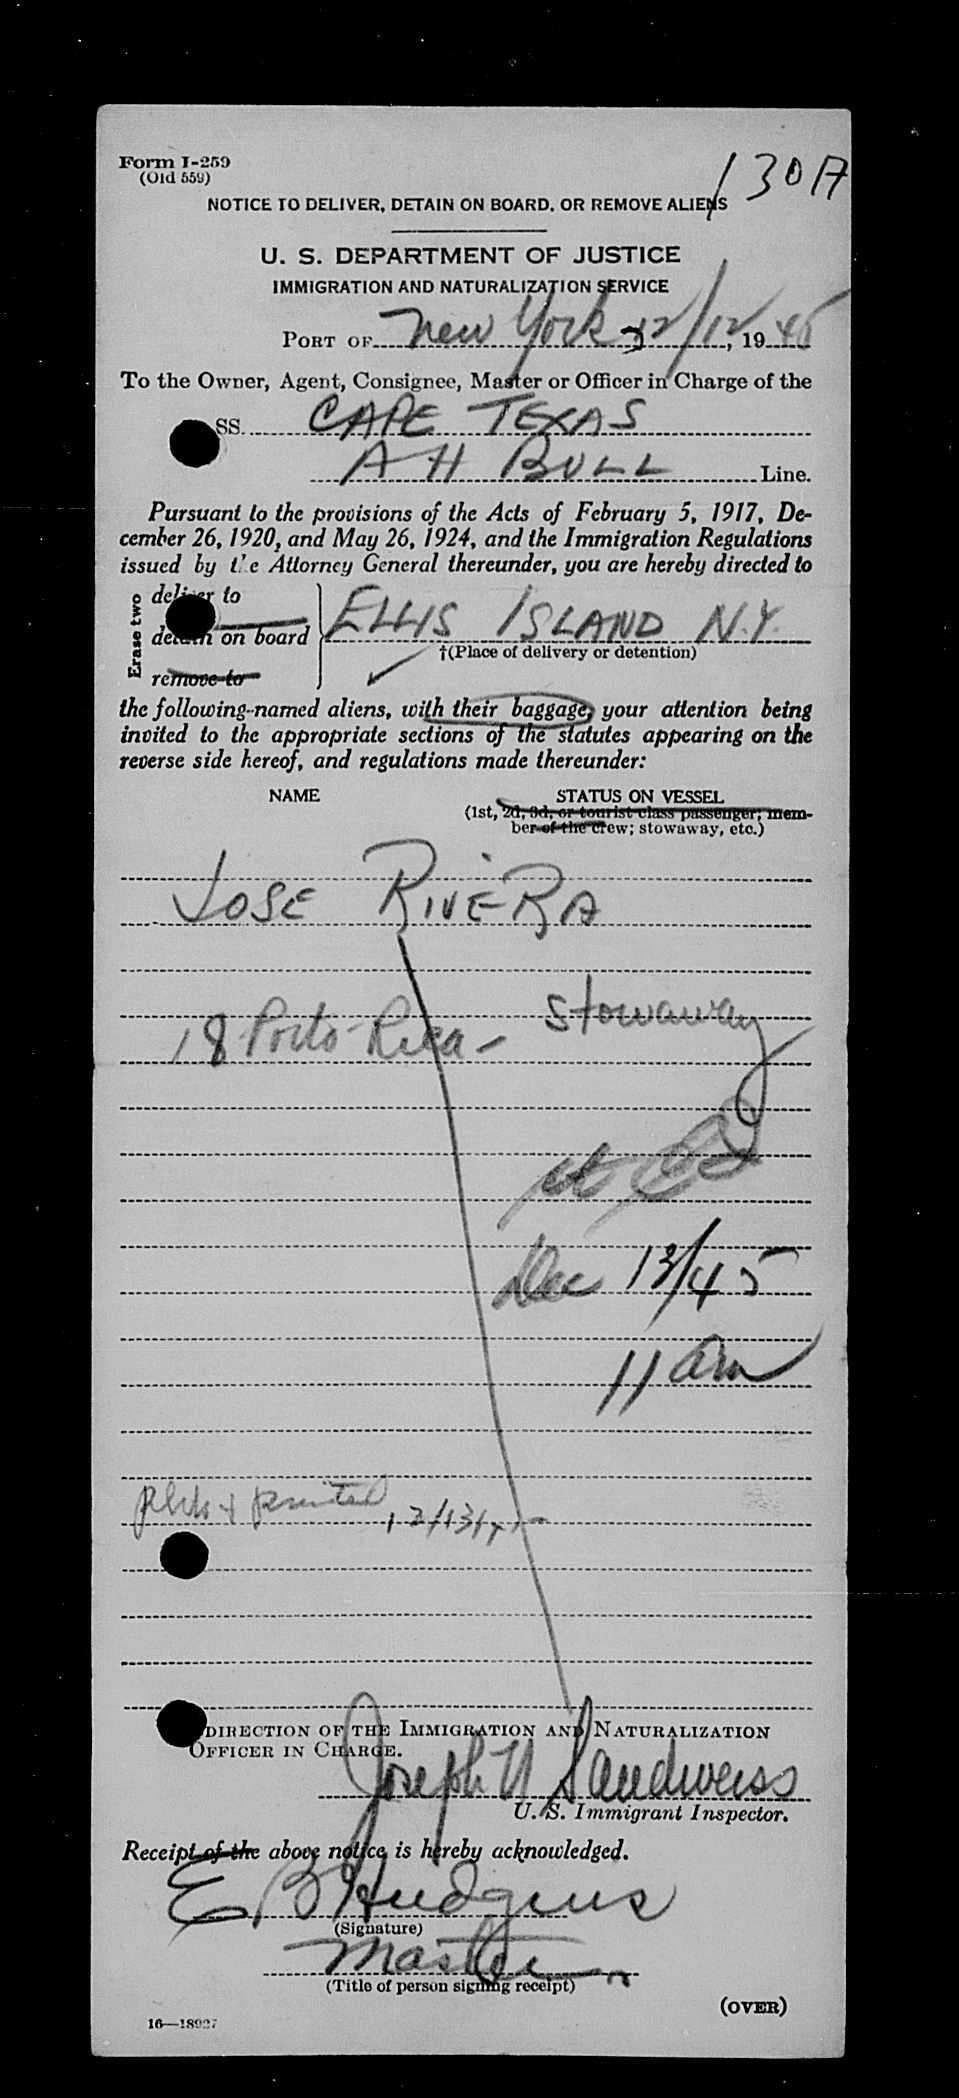 Form I-259
(Old 559)
130A
NOTICE TO DELIVER, DETAIN ON BOARD, OR REMOVE ALIENS
U. S. DEPARTMENT OF JUSTICE
IMMIGRATION AND NATURALIZATION SERVICE
PORT OF New York, 12/12, 1945
To the Owner, Agent, Consignee, Master or Officer in Charge of the
SS. CAPE TEXAS
A H BULL Line.
Pursuant to the provisions of the Acts of February 5, 1917, De-
cember 26, 1920, and May 26, 1924, and the Immigration Regulations
issued by the Attorney General thereunder, you are hereby directed to
Erase two
deliver to
detain on board
remove to
ELLIS ISLAND N.Y.
†(Place of delivery or detention)
the following-named aliens, with their baggage, your attention being
invited to the appropriate sections of the statutes appearing on the
reverse side hereof, and regulations made thereunder:
NAME STATUS ON VESSEL
(1st, 2d, 3d, or tourist class passenger; mem-
ber of the crew; stowaway, etc.)
JOSE RIVERA
18 Porto Rica - Stowaway
Dec 13/45
11 am
photo & printed 12/13/45
DIRECTION OF THE IMMIGRATION AND NATURALIZATION
OFFICER IN CHARGE.
Joseph N Sandweiss
U. S. Immigrant Inspector.
Receipt of the above notice is hereby acknowledged.
E B Hudgins
(Signature)
Master
(Title of person signing receipt)
(OVER)
16—18927